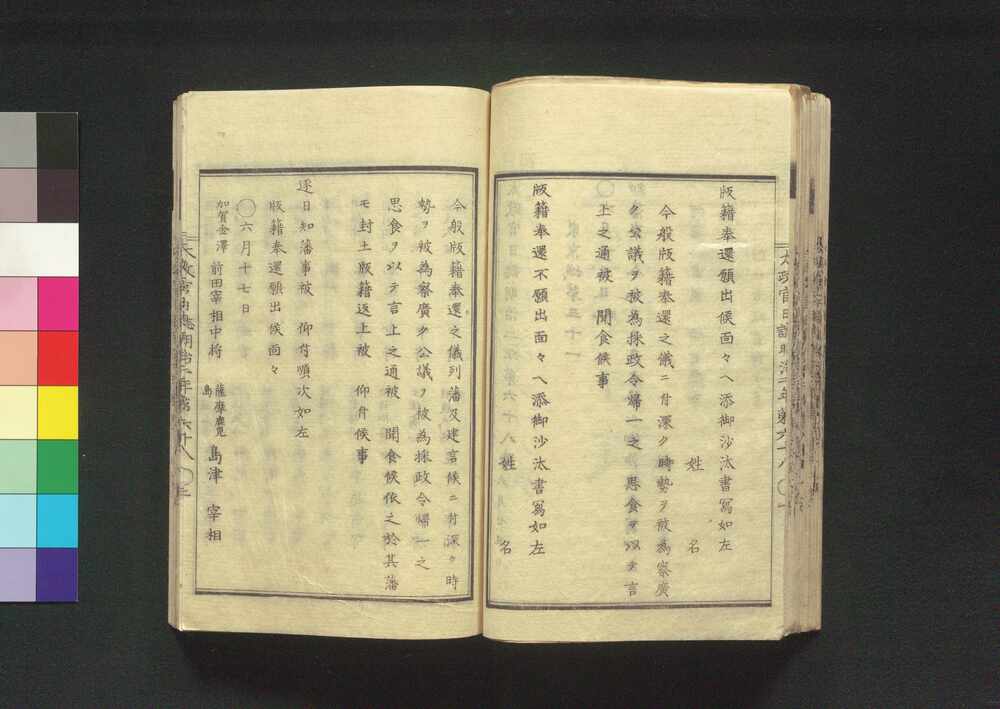 版籍奉還願出候面々ヘ添御沙汰書寫如左
姓 名
今般版籍奉還之儀ニ付深ク時勢ヲ被為察廣
ク公議ヲ被為採政令歸一之 思食ヲ以テ言
上之通被 聞食候事
版籍奉還不願出面々ヘ添御沙汰書寫如左
姓 名
今般版籍奉還之儀列藩及建言候ニ付深ク時
勢ヲ被為察廣ク公議ヲ被為採政令歸一之
思食ヲ以テ言上之通被 聞食候依之於其藩
モ封土版籍返上被 仰付候事
逐日知藩事被 仰付順次如左
版籍奉還願出候面々
〇六月十七日
加賀金澤 前田宰相中将
薩摩鹿児島 島津 宰相